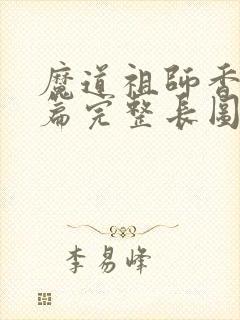 魔道祖師香
篇完整長圖
李易峰